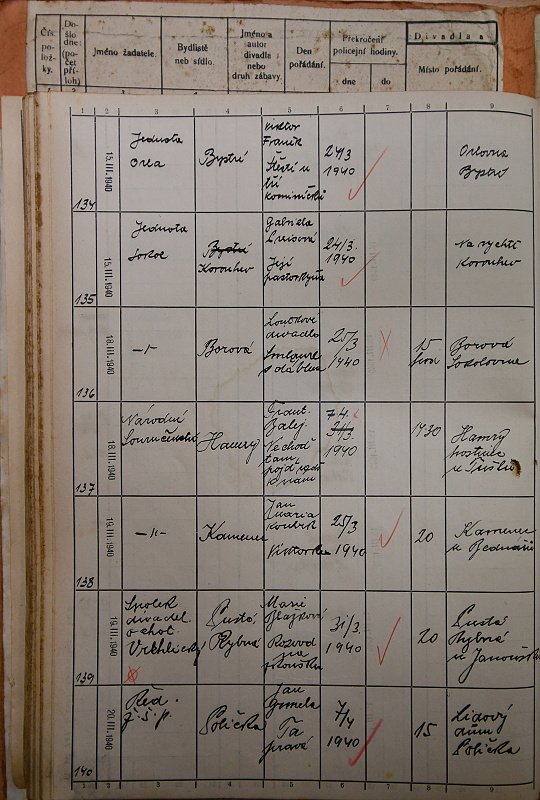 Čís. po- ložky.
Do- šlo dne: (po- čet pří- loh)
Jméno žadatele.
Bydliště neb sídlo.
Jméno a autor divadla nebo druh zábavy.
Den pořádání.
Překročení policejní hodiny.
dne
do
Divadla a
Místo pořádání.
1 2 3 4 5 6 7 8 9
134
15. III. 1940
Jednota
Orla
Bystré
Viktor
Franěk
Štěstí u
tří
kominíčků
24/3
1940
Orlovna
Bystré
135
15. III. 1940
Jednota
Sokol
Bystré
Korouhev
Gabriela
Preisová
Její
pastorkyňa
24/3.
1940
Na rychtě
Korouhev
136
18. III. 1940
Borová
Loutkové
divadlo
s dáblem
25/3
1940
15
hod
Borová
Sokolovna
137
18. III. 1940
Národní
Souručenství
Hamry
Frant.
Nechoď
tam
pojď
k nám
7 4.
31/3.
1940
1930
Hamry
hostinec
u
138
19. III. 1940
Kamenec
Jan
Maria
Viktorka
25/3
1940
20
Kamenec
u
139
19. III. 1940
Spolek
divadel.
ochot.
Vrchlický
Pustá
Rybná
Marie
Rozvod
na
zkoušku
31/3.
1940
20
Pustá
Rybná
u
140
20. III. 1940
Řed.
Polička
Jan
Ta
pravá
7/4
1940
15
Lidový
dům
Polička
1 2 3 4 5 6 7 8 9